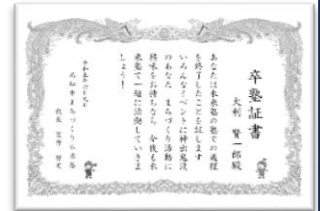 卒塾証書
大利 賢一郎殿
あなたは未来塾の塾での過程
を終了したことを証します
いろんなイベントに神出鬼没
のあなた まちづくり活動に
興味をお持ちなら 今後も未
来塾で一緒に活動していきま
しょう!
まちづくり未来塾
代表